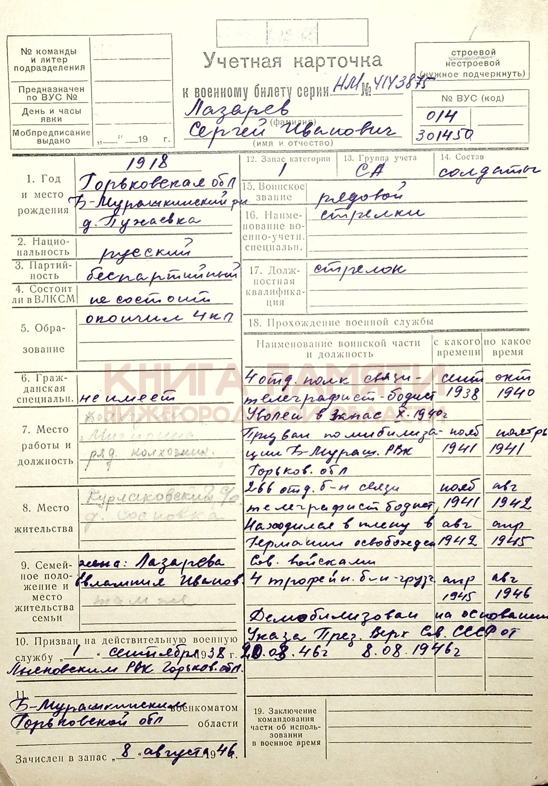 № команды
и литер
подразделения
Предназначен
по ВУС №
День и часы
явки
Мобпредписание
выдано
„ “ 19 г.
Учетная карточка
к военному билету серии НМ № 4143875
Лазарев
(фамилия)
Сергей Иванович
(имя и отчество)
строевой
нестроевой
(нужное подчеркнуть)
№ ВУС (код)
014
301450
1918
1. Год
и место
рождения
Горьковская обл
Б-Мурашкинский
д. Лужаевка
2. Нацио-
нальность
русский
3. Партий-
ность
беспартийный
4. Состоит
ли в ВЛКСМ
не состоит
5. Обра-
зование
окончил 4 кл
6. Граж-
данская
специальн.
не имеет
7. Место
работы и
должность
ряд. колхозник.
8. Место
жительства
д. Сосновка
9. Семей-
ное поло-
жение и
место
жительства
семьи
жена: Лазарева
Иванов
там же
10. Призван на действительную военную
службу „ 1 “ сентября 1938 г.
Лысковским РВК Горьков. обл.
11.
Б-Мурашкинским военкоматом
Горьковской обл области
Зачислен в запас „ 8 “ августа 1946 г.
12. Запас категории
1
13. Группа учета
СА
14. Состав
солдаты
15. Воинское
звание
рядовой
16. Наиме-
нование во-
енно-учетн.
специальн.
стрелки
17. Долж-
ностная
квалифика-
ция
стрелок
18. Прохождение военной службы
Наименование воинской части
и должность
с какого
времени
по какое
время
4 отд. полк связи- сент окт
телеграфист-бодист 1938 1940
Уволен в запас X. 1940г
Призван по мобилиза- нояб ноябрь
ции Б-Мураш. РВК 1941 1941
Горьков. обл
266 отд. б-н связи нояб авг
телеграфист бодист, 1941 1942
Находился в плену в авг апр
Германии освобожден 1942 1945
Сов. войсками
4 трофейн. б-н-грузч апр авг
1945 1946
Демобилизован на основании
Указа През. Верх Св. СССР от
20.03.46г 8.08.1946г
19. Заключение
командования
части об использо-
вании
в военное время
КНИГА ПАМЯТИ